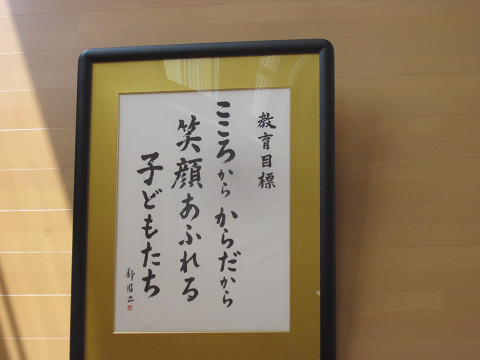 教育目標
こころから からだから
笑顔あふれる
子どもたち